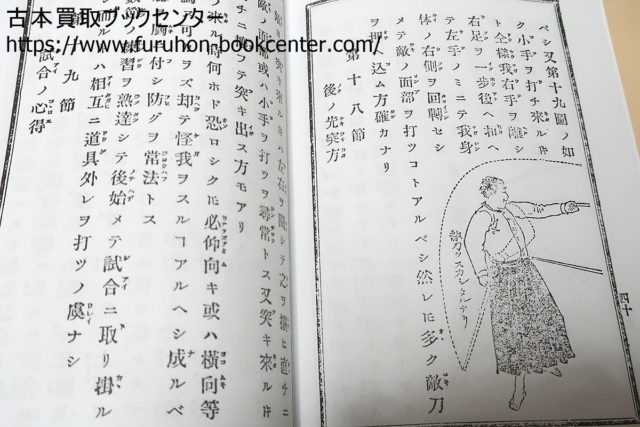 古本買取ブックセンター
https://www.furuhon-bookcenter.com/
ベシ又第十九圖ノ如
ク小手ヲ打チ來ルキ
ト全樣我右手ヲ離シ
右足ヲ一歩後ヘ扣ヘ
テ左手ノミニテ我身
体ノ右側ヲ回轉セシ
メテ敵ノ面部ヲ打ツコトアルベシ然レ𪜈多ク敵刀
ヲ押ヘ込ム方確カナリ
第十八節
後ノ先突方
敵刀ヲスカシタルトリ
四十
敵ノ面部或ハ小手ヲ打ツヲ尋常トス又突キ來ルキ
チニ突キ出ス方モアリ
ル時ハ何ホド恐ロシク𪜈必仰向キ或ハ橫向等
可ラズ却テ怪我ヲスルヿアルヘシ成ルベ
ニ付シ防グヲ常法トス
練習ヲ熟達シテ後始メテ試合ニ取リ掛ル
ハ相互ニ道具外レヲ打ツノ虞ナシ
九節
試合ノ心得